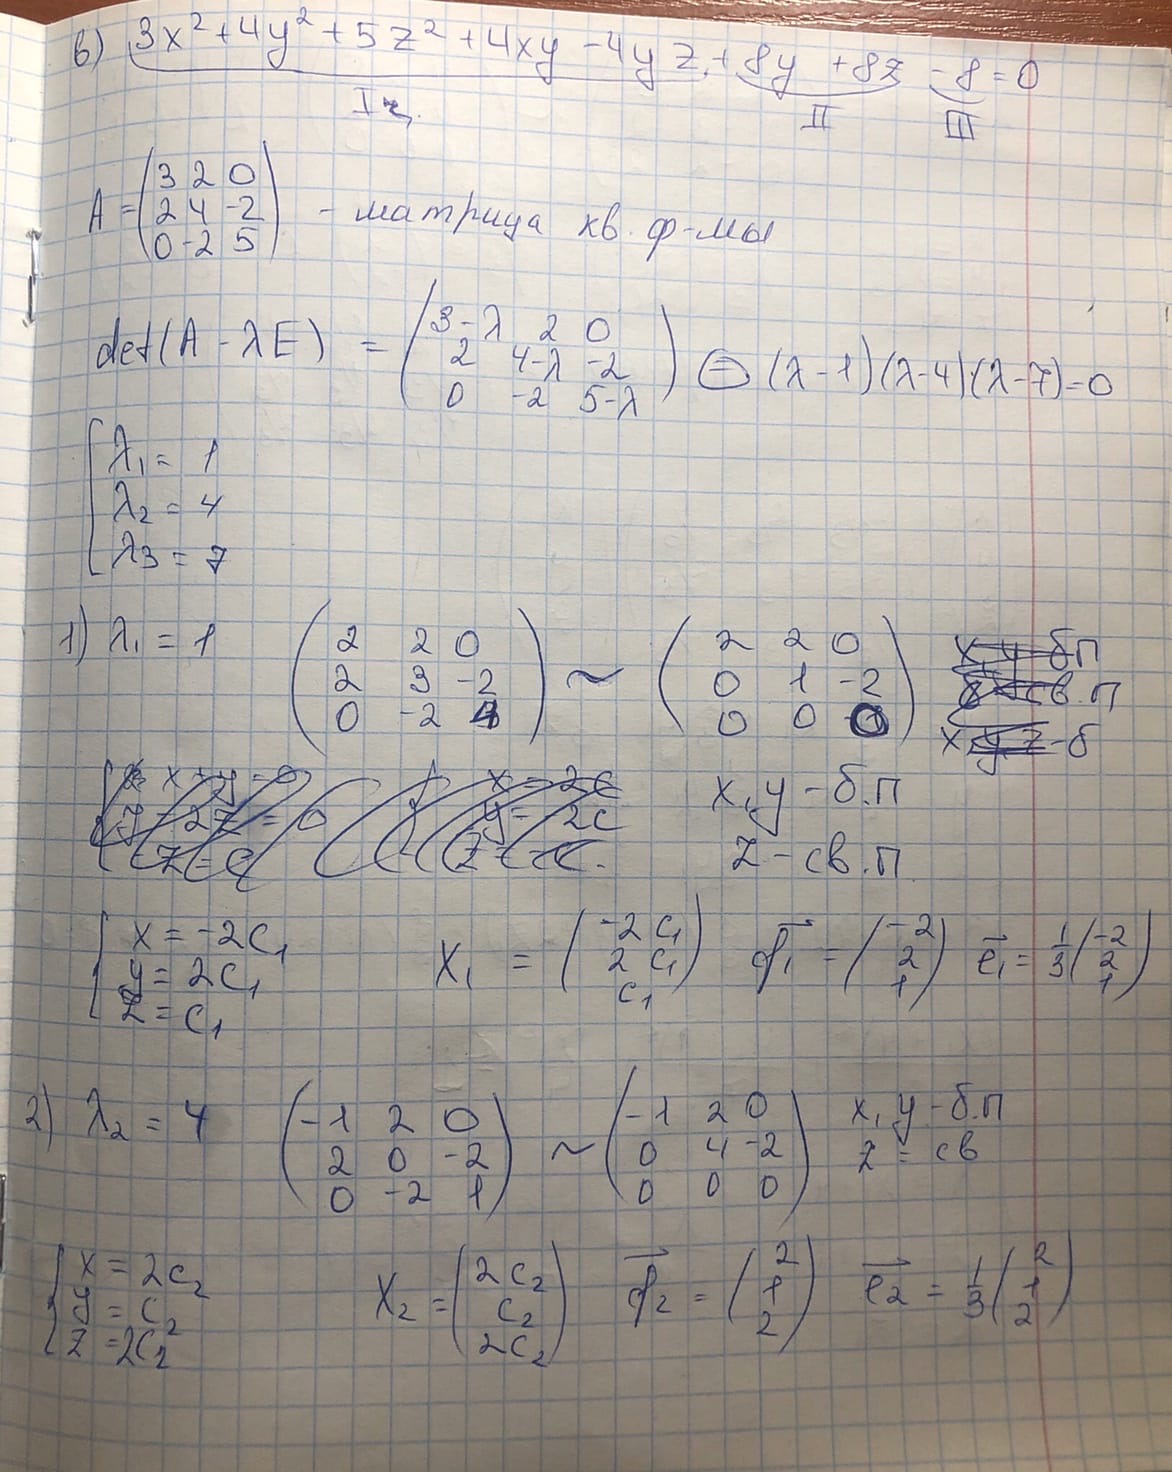 в) 3x² + 4y² + 5z² + 4xy - 4yz + 8y + 8z - 8 = 0
I ч. II III
A = (3 2 0
2 4 -2
0 -2 5) - матрица кв. ф-мы
det(A - λE) = (3-λ 2 0
2 4-λ -2
0 -2 5-λ) = (λ-1)(λ-4)(λ-7)=0
λ₁ = 1
λ₂ = 4
λ₃ = 7
1) λ₁ = 1 (2 2 0
2 3 -2
0 -2 4) ~ (2 2 0
0 1 -2
0 0 0)
x, y - б.п
z - св.п.
x = -2C₁
y = 2C₁
z = C₁
X₁ = (-2C₁
2C₁
C₁) f₁ = (-2
2
1) e₁ = 1/3 (-2
2
1)
2) λ₂ = 4 (-1 2 0
2 0 -2
0 -2 1) ~ (-1 2 0
0 4 -2
0 0 0) x, y - б.п
z = св
x = 2C₂
y = C₂
z = 2C₂
X₂ = (2C₂
C₂
2C₂) f₂ = (2
1
2) e₂ = 1/3 (2
1
2)